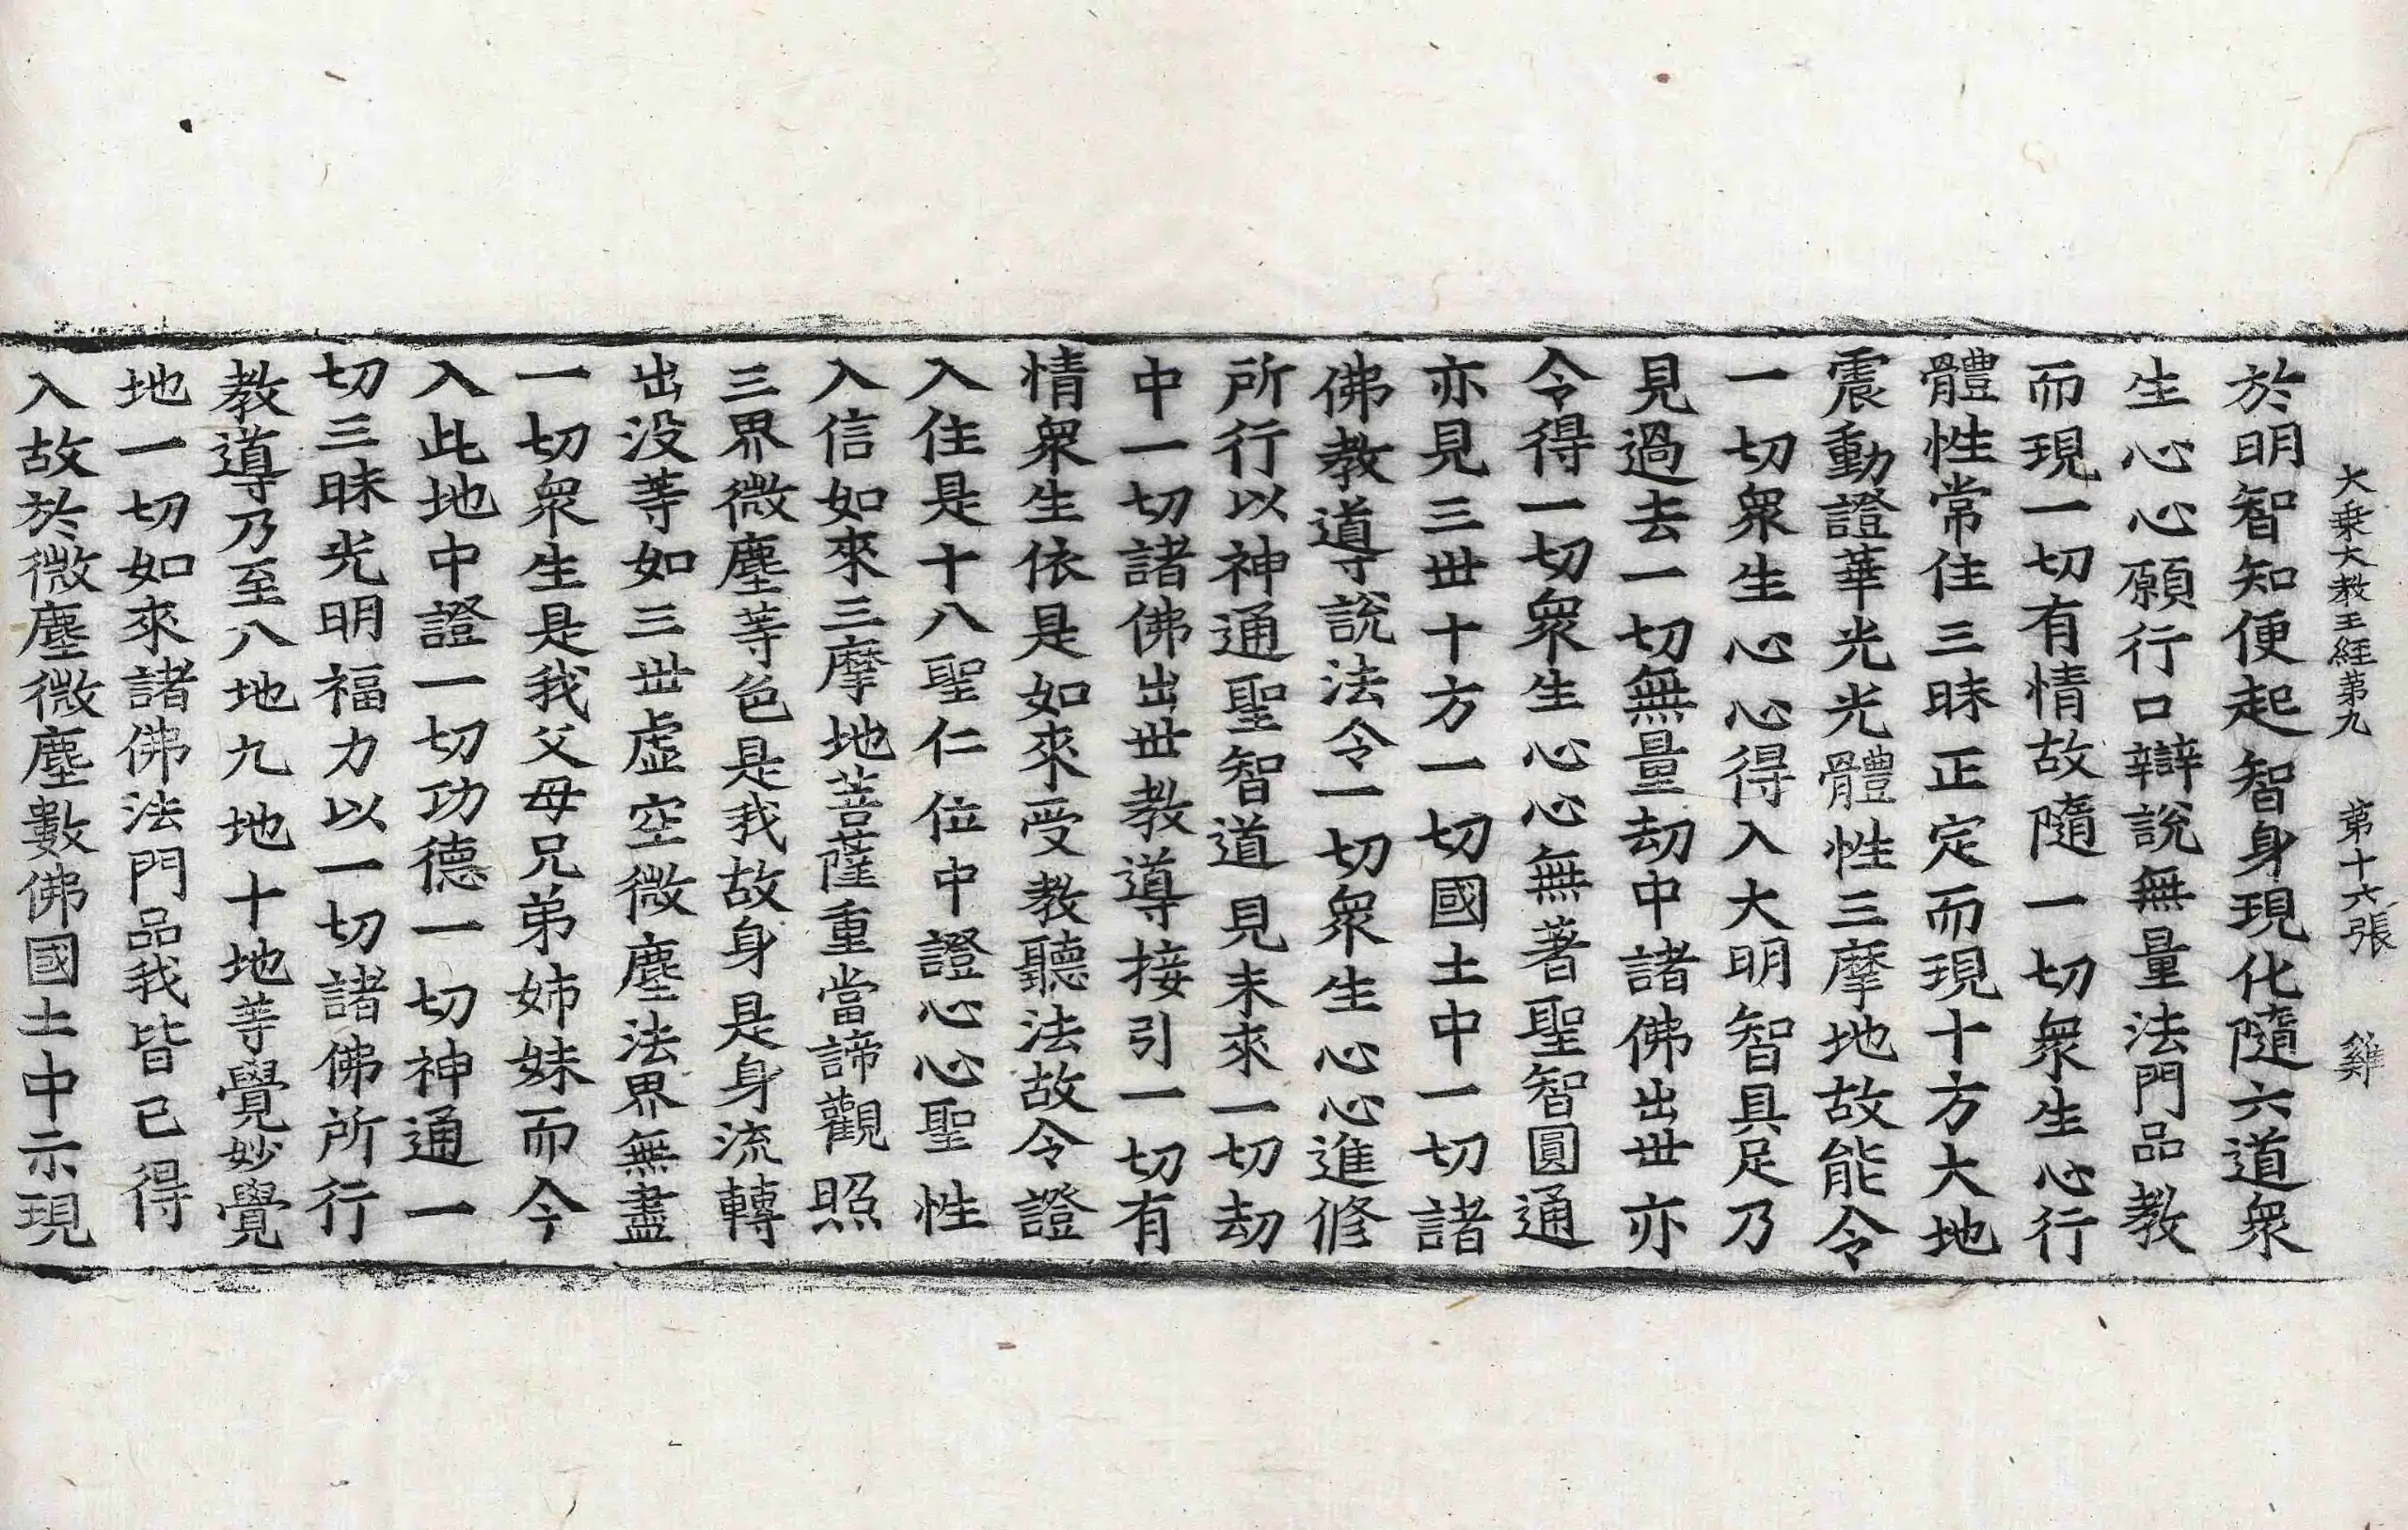 大乗大教王經第九　第十六張　雞
於明智知便起智身現化隨六道衆
生心心願行口辯說無量法門品教
而現一切有情故隨一切衆生心行
體性常住三昧正定而現十方大地
震動證華光光體性三摩地故能令
一切衆生心心得入大明智具足乃
見過去一切無量劫中諸佛出世亦
令得一切衆生心心無著聖智圓通
亦見三世十方一切國土中一切諸
佛教導說法令一切衆生心心進修
所行以神通聖智道見未來一切劫
中一切諸佛出世教導接引一切有
情衆生依是如來受教聽法故令證
入住是十八聖仁位中證心心聖性
入信如來三摩地菩薩重當諦觀照
三界微塵等色是我故身是身流轉
出没等如三世虛空微塵法界無盡
一切衆生是我父母兄弟姉妹而今
入此地中證一切功德一切神通一
切三昧光明福力以一切諸佛所行
教導乃至八地九地十地等覺妙覺
地一切如來諸佛法門品我皆已得
入故於微塵微塵數佛國土中示現